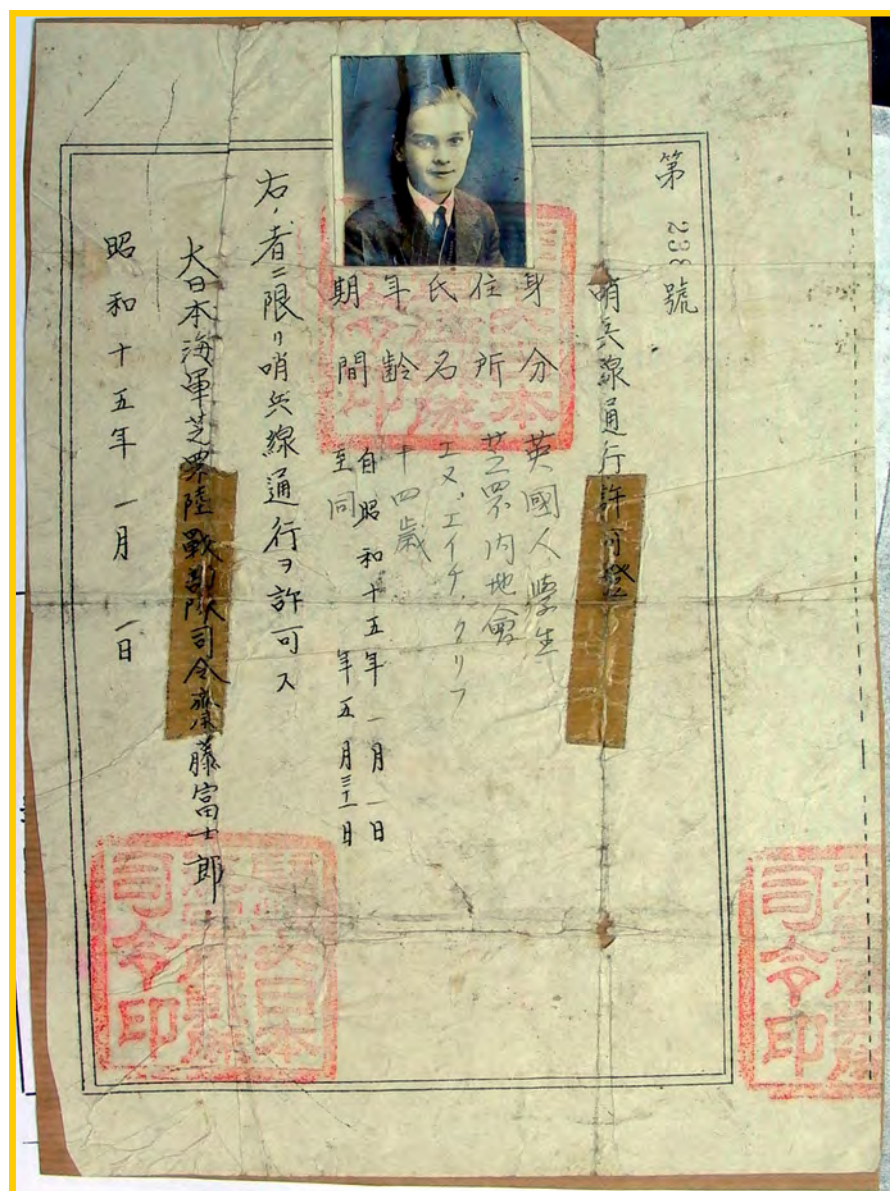 第 238 號
哨兵線通行許可證
身分 英國人學生
住所 芝罘内地會
氏名 エヌ、エイチ、クリフ
年齡 十四歳
期間 自昭和十五年一月一日
至同 年五月三十一日
右ノ者ニ限リ哨兵線通行ヲ許可ス
大日本海軍芝罘陸戰部隊司令齋藤富士郎
昭和十五年一月一日
大日本
司令印
司令印